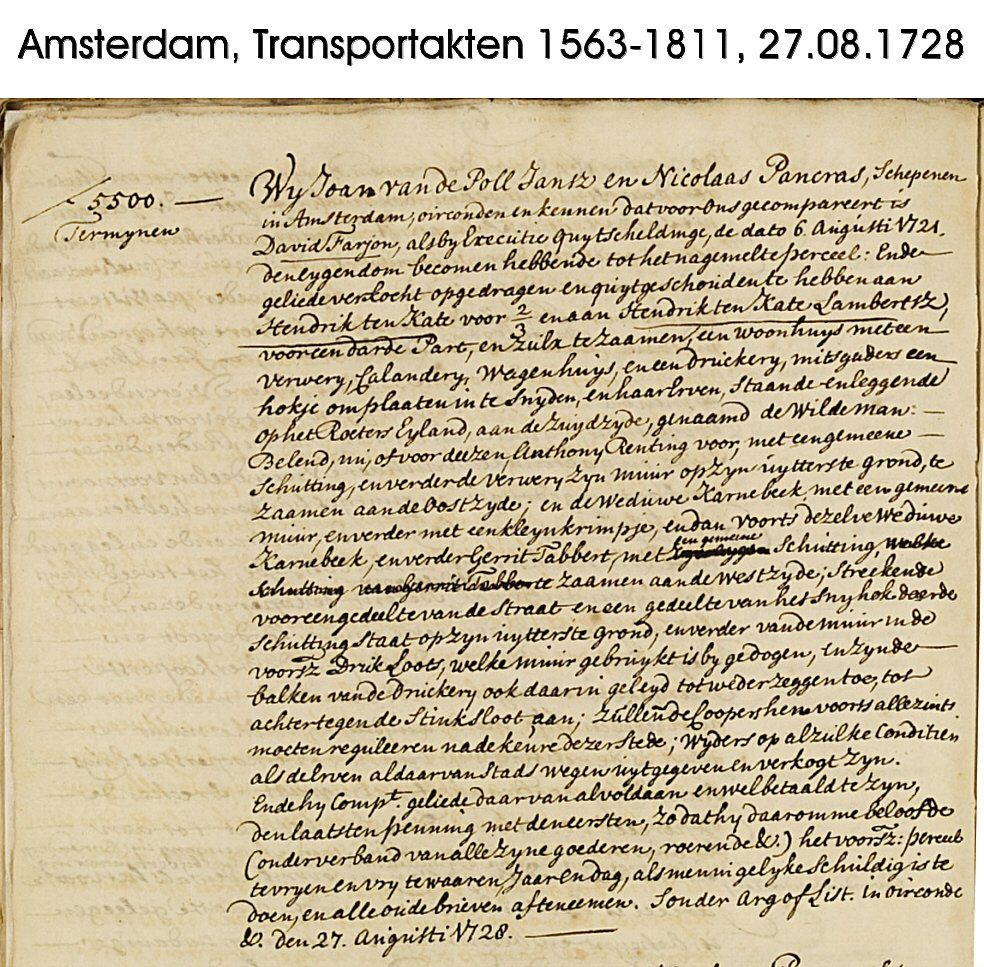 Amsterdam, Transportakten 1563-1811, 27.08.1728
ƒ 5500.—
Termynen
Wy Joan van de Poll Jansz en Nicolaas Pancras, Schepenen
in Amsterdam, oirconden en kennen dat voor Ons gecompareert is
David Farjon, als by Executie Quytscheldinge, de dato 6. Augusti 1721.
den eygendom becomen hebbende tot het nagemelte perceel: Ende
geliede verkocht opgedragen en quytgeschonden te hebben aan
Hendrik ten Kate voor 2/3 en aan Hendrik ten Kate Lambertsz,
voor een darde Part, en zulx te zaamen, een woonhuys met een
verwery, Calandery, Wagenhuys, en een Druckery, mitsgaders een
hokje om plaaten in te snyden, en haar Erven, staande en leggende
op het Roeters Eyland, aan de Zuydzyde, genaamd de Wildeman: —
Belend, nu, of voor deezen, Anthony Renting voor, met een gemeene —
Schutting, en verder de verwery zyn muur op zyn uytterste grond, te
zaamen aan de Oostzyde; en de Weduwe Karnebeek, met een gemeene
muur, en verder met een kleyn krimpje, en dan voorts dezelve Weduwe
Karnebeek, en verder Gerrit Tabbert, met een gemeene Schutting, welke
Schutting van Gerrit Tabbert te zaamen aan de Westzyde; Streckende
voor een gedeelte van de Straat en een gedeelte van het Snyhok deerde
Schutting staat op zyn uytterste grond, en verder van de muur in de
voorsz Druk Loots, welke muur gebruykt is by gedogen, en zynde
balken van de Druckery ook daar in geleyd tot wederzeggen toe, tot
achter tegen de Stinksloot aan; zullende Coopers hen voorts allezints
moeten reguleeren na de keure dezer stede; Wyders op al zulke Conditien
als de Erven aldaar van Stads wegen uytgegeven en verkogt zyn.
Ende hy Compt. geliede daar van al voldaan en wel betaald te zyn,
den laatsten penning met den eersten, zo dat hy daaromme beloofde
(onder verband van alle zyne goederen, roerende &.) het voorsz: perceel
te vryen en vry te waaren, Jaar en dag, als men in gelyke schuldig is te
doen, en alle oude brieven af te neemen. Sonder Arg of List. in oirconde
&. den 27. Augusti 1728.